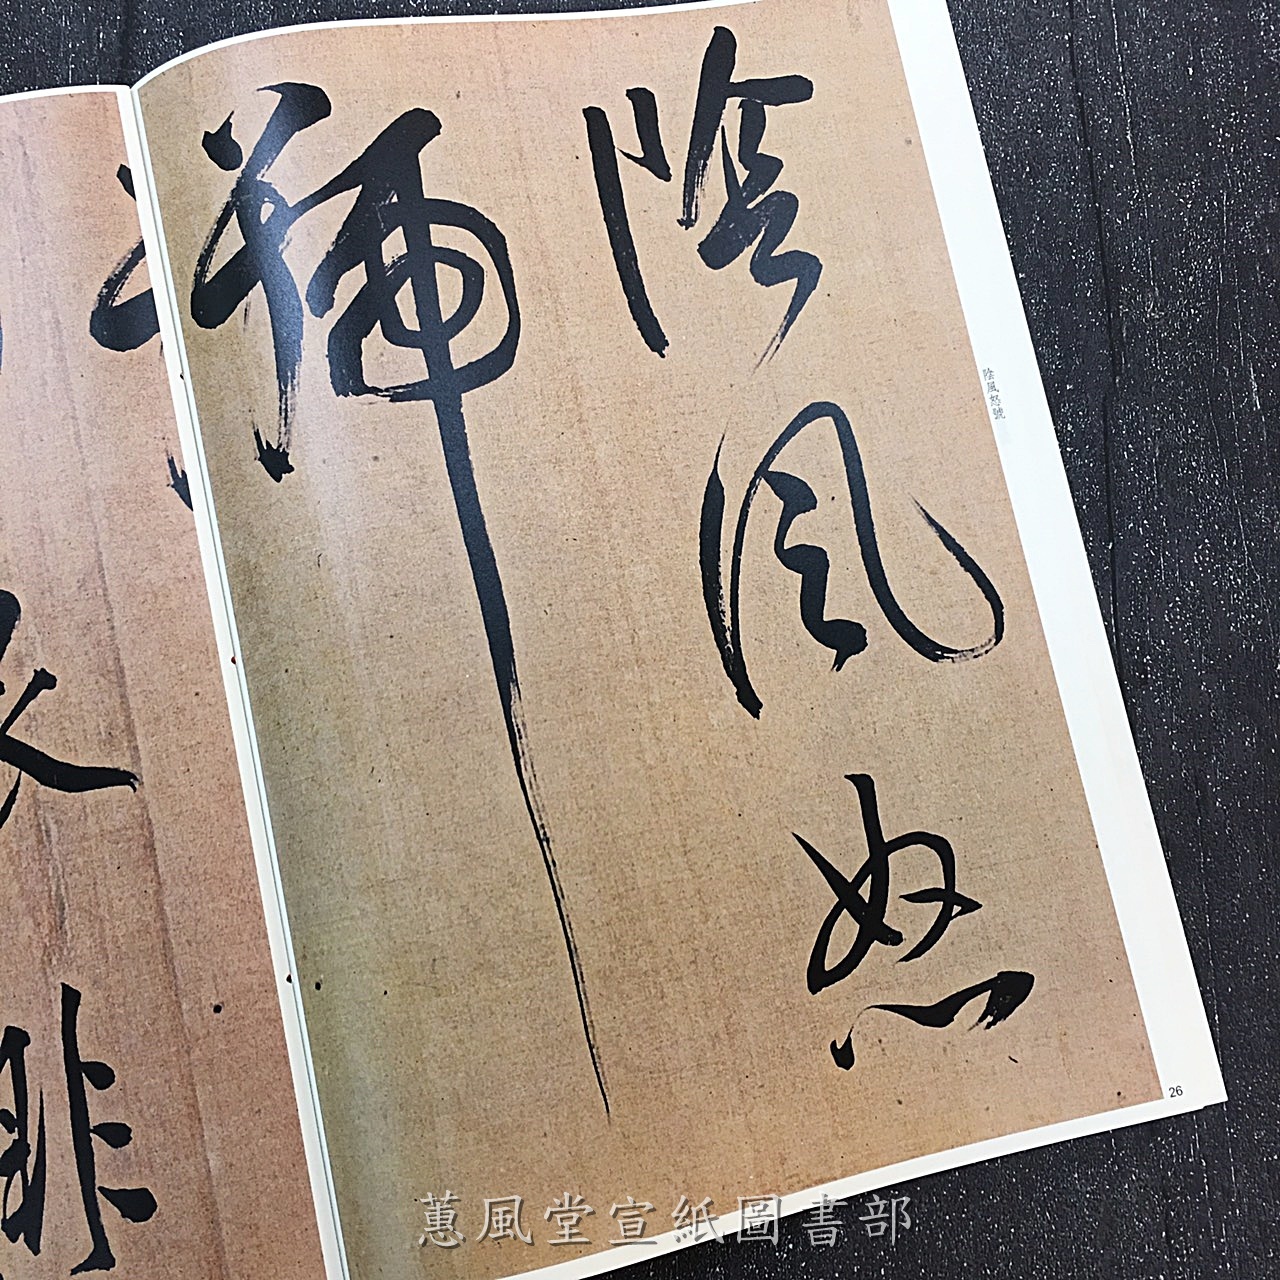 陰風怒
號
陰風怒號
26
非
蕙風堂宣紙圖書部